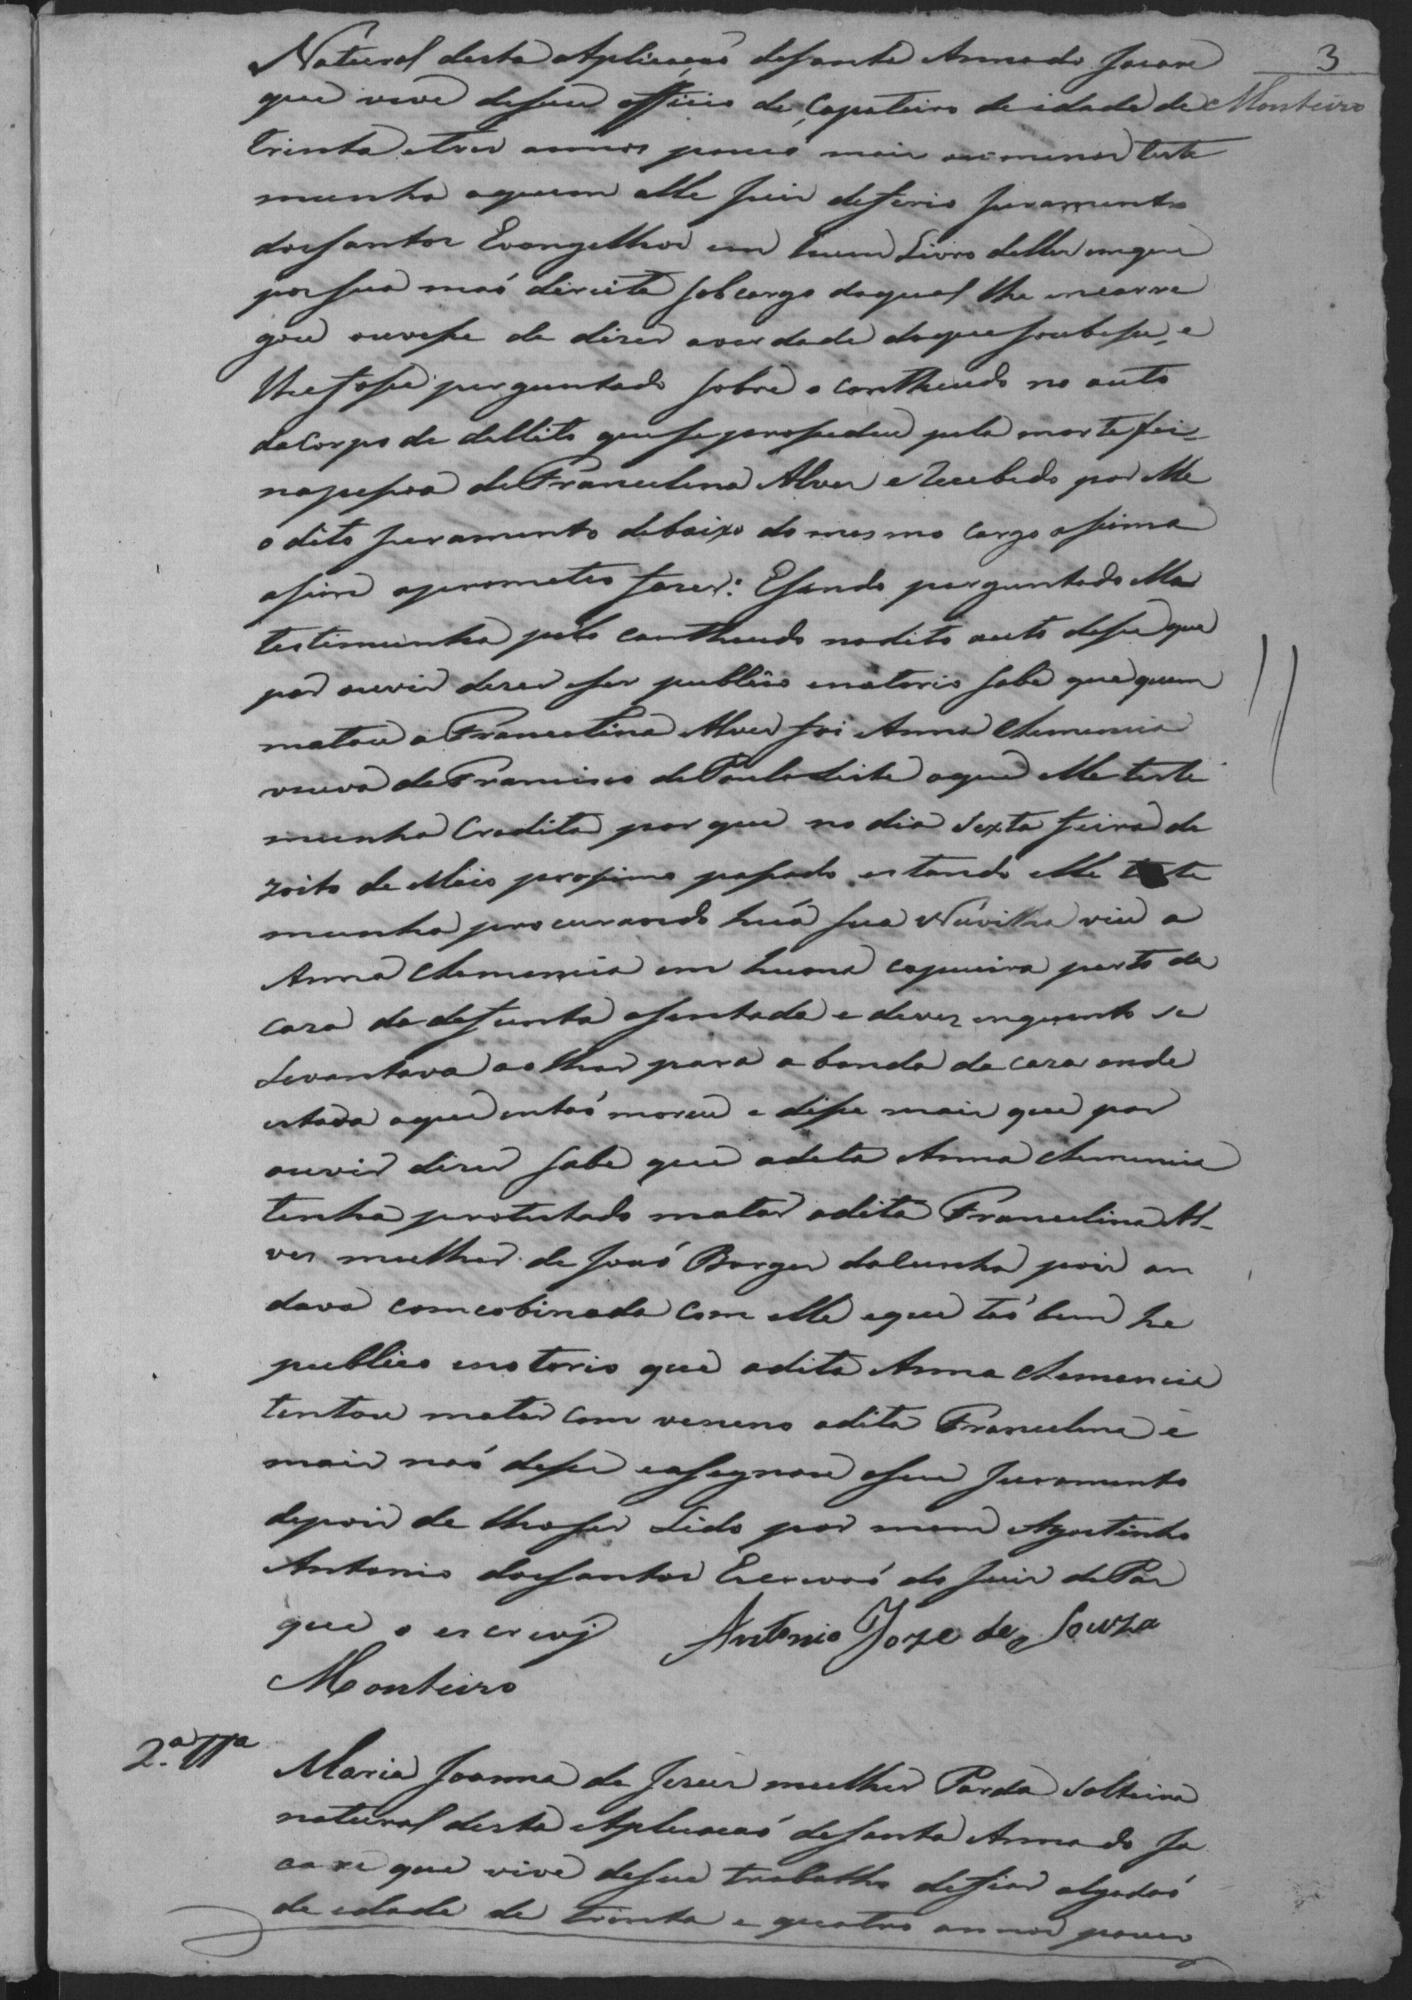 3
Monteiro
Natural desta Aplicacaó desanta Anna do Jacare
que vive deseu officio de Çapateiro de idade de
trinta etres annos pouco mais ou menos teste
munha aquem elle Juis deferio Juramento
dos santos Evangelhos em hum Livro delles emque
pos sua maó direita sob cargo doqual lhe encarre
gou ouvese de diser averdade doque soubese, e
lhe fose perguntado sobre o contheudo no auto
de Corpo de dellito que se prosedeu pela morte fei-
na pesoa de Francelina Alves e recebido por elle
o dito Juramento debaixo do mesmo cargo asima
asim o prometeo faser: Esendo perguntado elle
testimunha pelo contheudo no dito auto dise que
por ouvir diser eser publico enotorio sabe que quem
matou a Francelina Alves foi Anna Clemencia
viuva de Francisco de Paula Leite oque elle teste
munha Credita por que no dia Sexta feira de
zoito de Maio prosimo pasado estando elle teste
munha procurando huá sua Nuvilha viu a
Anna Clemencia em huma capueira perto da
caza da defunta asentada e devez enquanto se
Levantava aolhar para a banda da caza onde
estava aque entaó moreu e dise mais que por
ouvir diser sabe que adita Anna Clemencia
tinha protestado matar adita Francelina Al-
ves mulher de Joaó Borges daCunha pois an
dava comcobinada com elle eque taó bem he
publico enotorio que adita Anna Clemencia
tentou matar com veneno adita Francelina e
mais naó dise easegnou oseu Juramento
depois de lhe ser Lido por mem Agostinho
Antonio dos santos Escrivaó do Juis de Pas
que o escrevj Antonio Joze de Souza
Monteiro
2.ª Tª
Maria Joanna de Jesus mulher Parda solteira
natural desta Aplicacaó desanta Anna do Ja
care que vive deseu trabalho defiar algodaó
de idade de trinta e quatro annos pouco